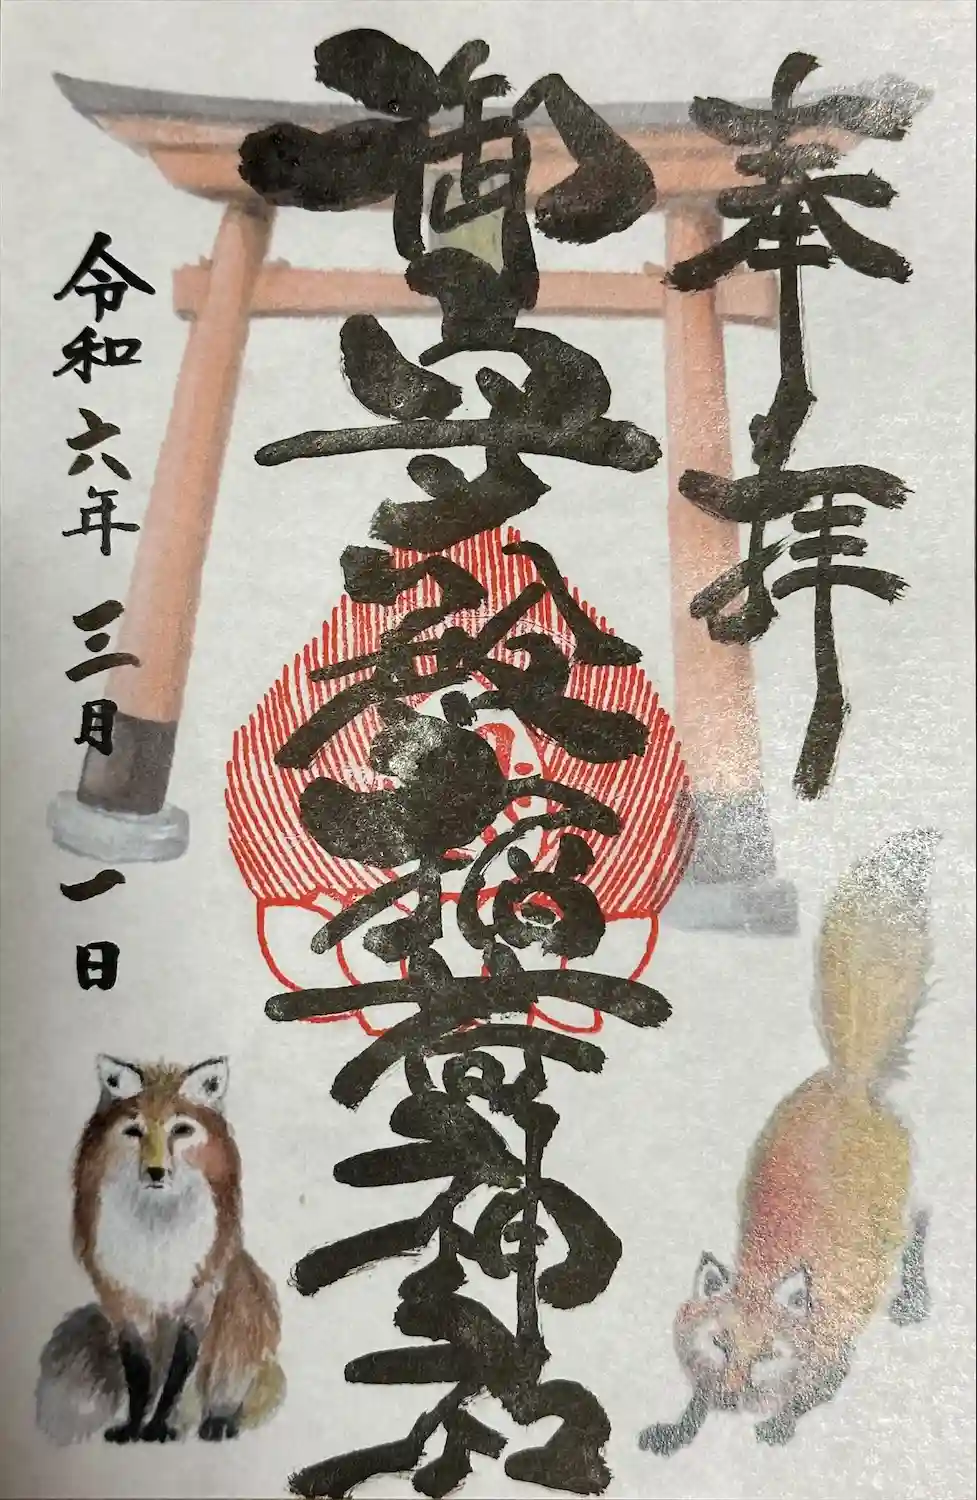 奉拝
稲荷神社
令和六年三月一日